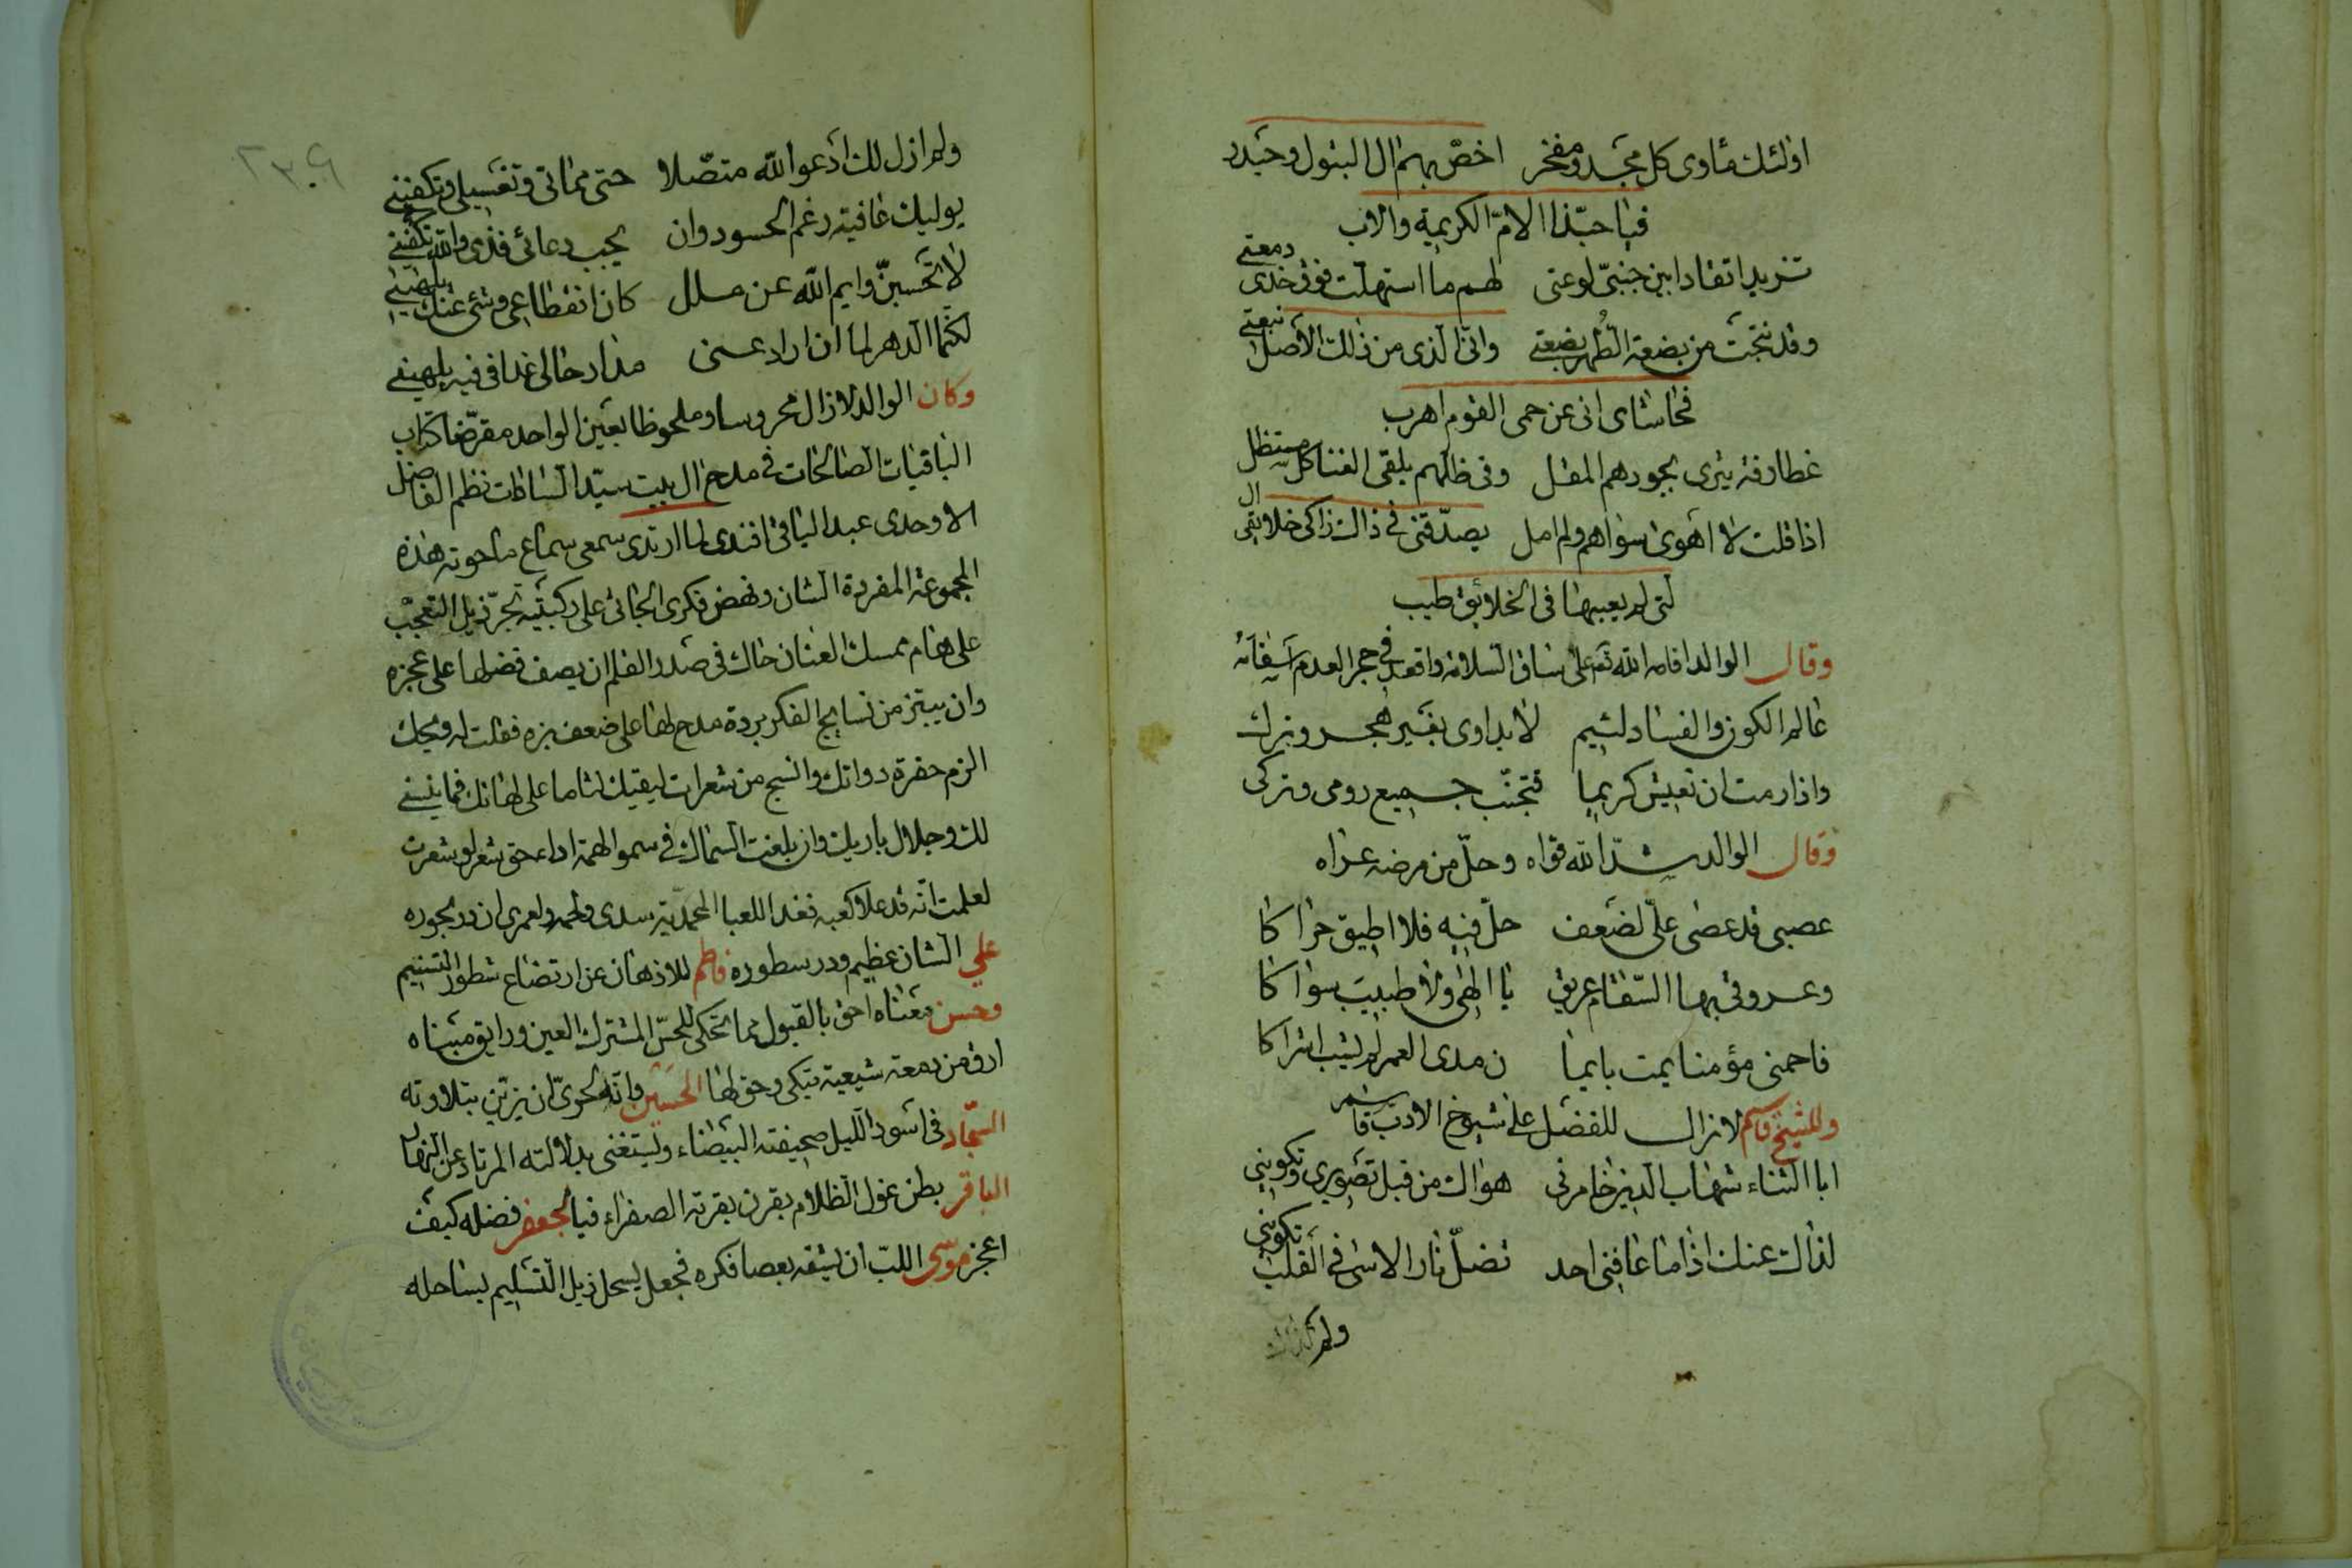 اولئك مأوى كل مجد ومفخر اخصّ بهم ال البتول وحيدر
فيا حبّذا الامّ الكريمة والاب
تزيد اتقادا بين جنبيّ لوعتى لهم ما استهلت فوق خدى دمعتے
وقد نتجت من بضعة الطُهر بضعتے وانّى الذى من ذلك الأصل نبعتے
فحاشاى انى عن حمى القوم اهرب
غطارفة يثرى بجودهم المقل وفى ظلهم يلقى الغنا كل مستظل
اذا قلت لا اهوى سواهم ولم امل يصدّقنى فى ذاك زاكى خلايقى ال
لتى لم يعبها فى الخلائق طيب
وقال الوالد اقامه الله تع على ساق السلامة واقعد فى حجر العدم سقامه
عالم الكون والفساد لئيم لا يداوى بغير هجر وترك
واذا رمت ان تعيش كريما فتجنّب جميع رومى وتركى
وقال الوالد شدّ الله قواه وحلّ من مرضه عراه
عصبى قد عصى علىّ لضعف حلّ فيه فلا اطيق حراكا
وعروقى بها السقام عريق يا الهى ولا طبيب سواكا
فاحمنى مؤمنا يمت بايما ن مدى العمر لم يشب اشراكا
وللشيخ قاسم لا زال للفضل على شيوخ الادب قاسم
ابا الثناء شهاب الدين خامرنى هواك من قبل تصويرى وتكوينى
لذاك عنك اذا ما عاقنى احد تضلّ نار الاسى فى القلب تكوينى
ولم
٢٣٠٩
ولم ازل لك ادعوا الله متصّلا حتى مماتى وتغسيلى وتكفينے
يوليك عافية رغم الحسود وان يجب دعائى فذى والله تكفينے
لا تحسبنّ وايم الله عن ملل كان انقطاعى وشئ عنك يلهينے
لكنّما الدهر لما ان اراد عنى مذ ار حالى غدا فى فيه يلهينے
وكان الوالد لا زال محروسا وملحوظا بعين الواحد مقرّضا كتاب
الباقيات الصالحات فى مدح ال بيت سيّد السادات نظم الفاضل
الاوحدى عبد الباقى افندى لما ارتدى سمعى سماع ما حوته هذه
المجموعة المفردة الشان ونهض فكرى الجاثى على ركبتيه تجرّ ذيل التعجّب
على هام ممسك العنان حاك فى صدر القلم ان يصف فضلها على عجزه
وان يبتز من نسايج الفكر بردة مدح لها على ضعف بزه فقلت له ويحك
الزم حفرة دواتك وانسج من شعرات ليقتك لثاما على لهاتك فما ينبغے
لك وجلال باريك وان بلغت السماك فى سمو الهمة اداء حق شعر لو شعرت
لعلمت انّه قد علا كعبه فغدا للعبا المحمّديّة سدى ولحمه ولعمرى ان در بحوره
علي الشان عظيم ودر سطوره فاطم للاذهان عن ارتضاع شطور التسنيم
وحسن معناه احق بالقبول مما تحكى للحسّ المشترك العين ورايق مبناه
ارق من دمعة شيعية تبكى وحق لها الحسين وانّه لحرىّ ان يزيّن بتلاوته
السجّاد فى اسود الليل صحيفته البيضاء ويستغنى بدلالته المرتاد عن النهار
الباقر بطن غول الظلام بقرن بقرته الصفراء فيا لجعفر فضله كيف
اعجز موسى اللبّ ان يشقه بعصا فكره فجعل يسحل ذيل التسليم بساحله